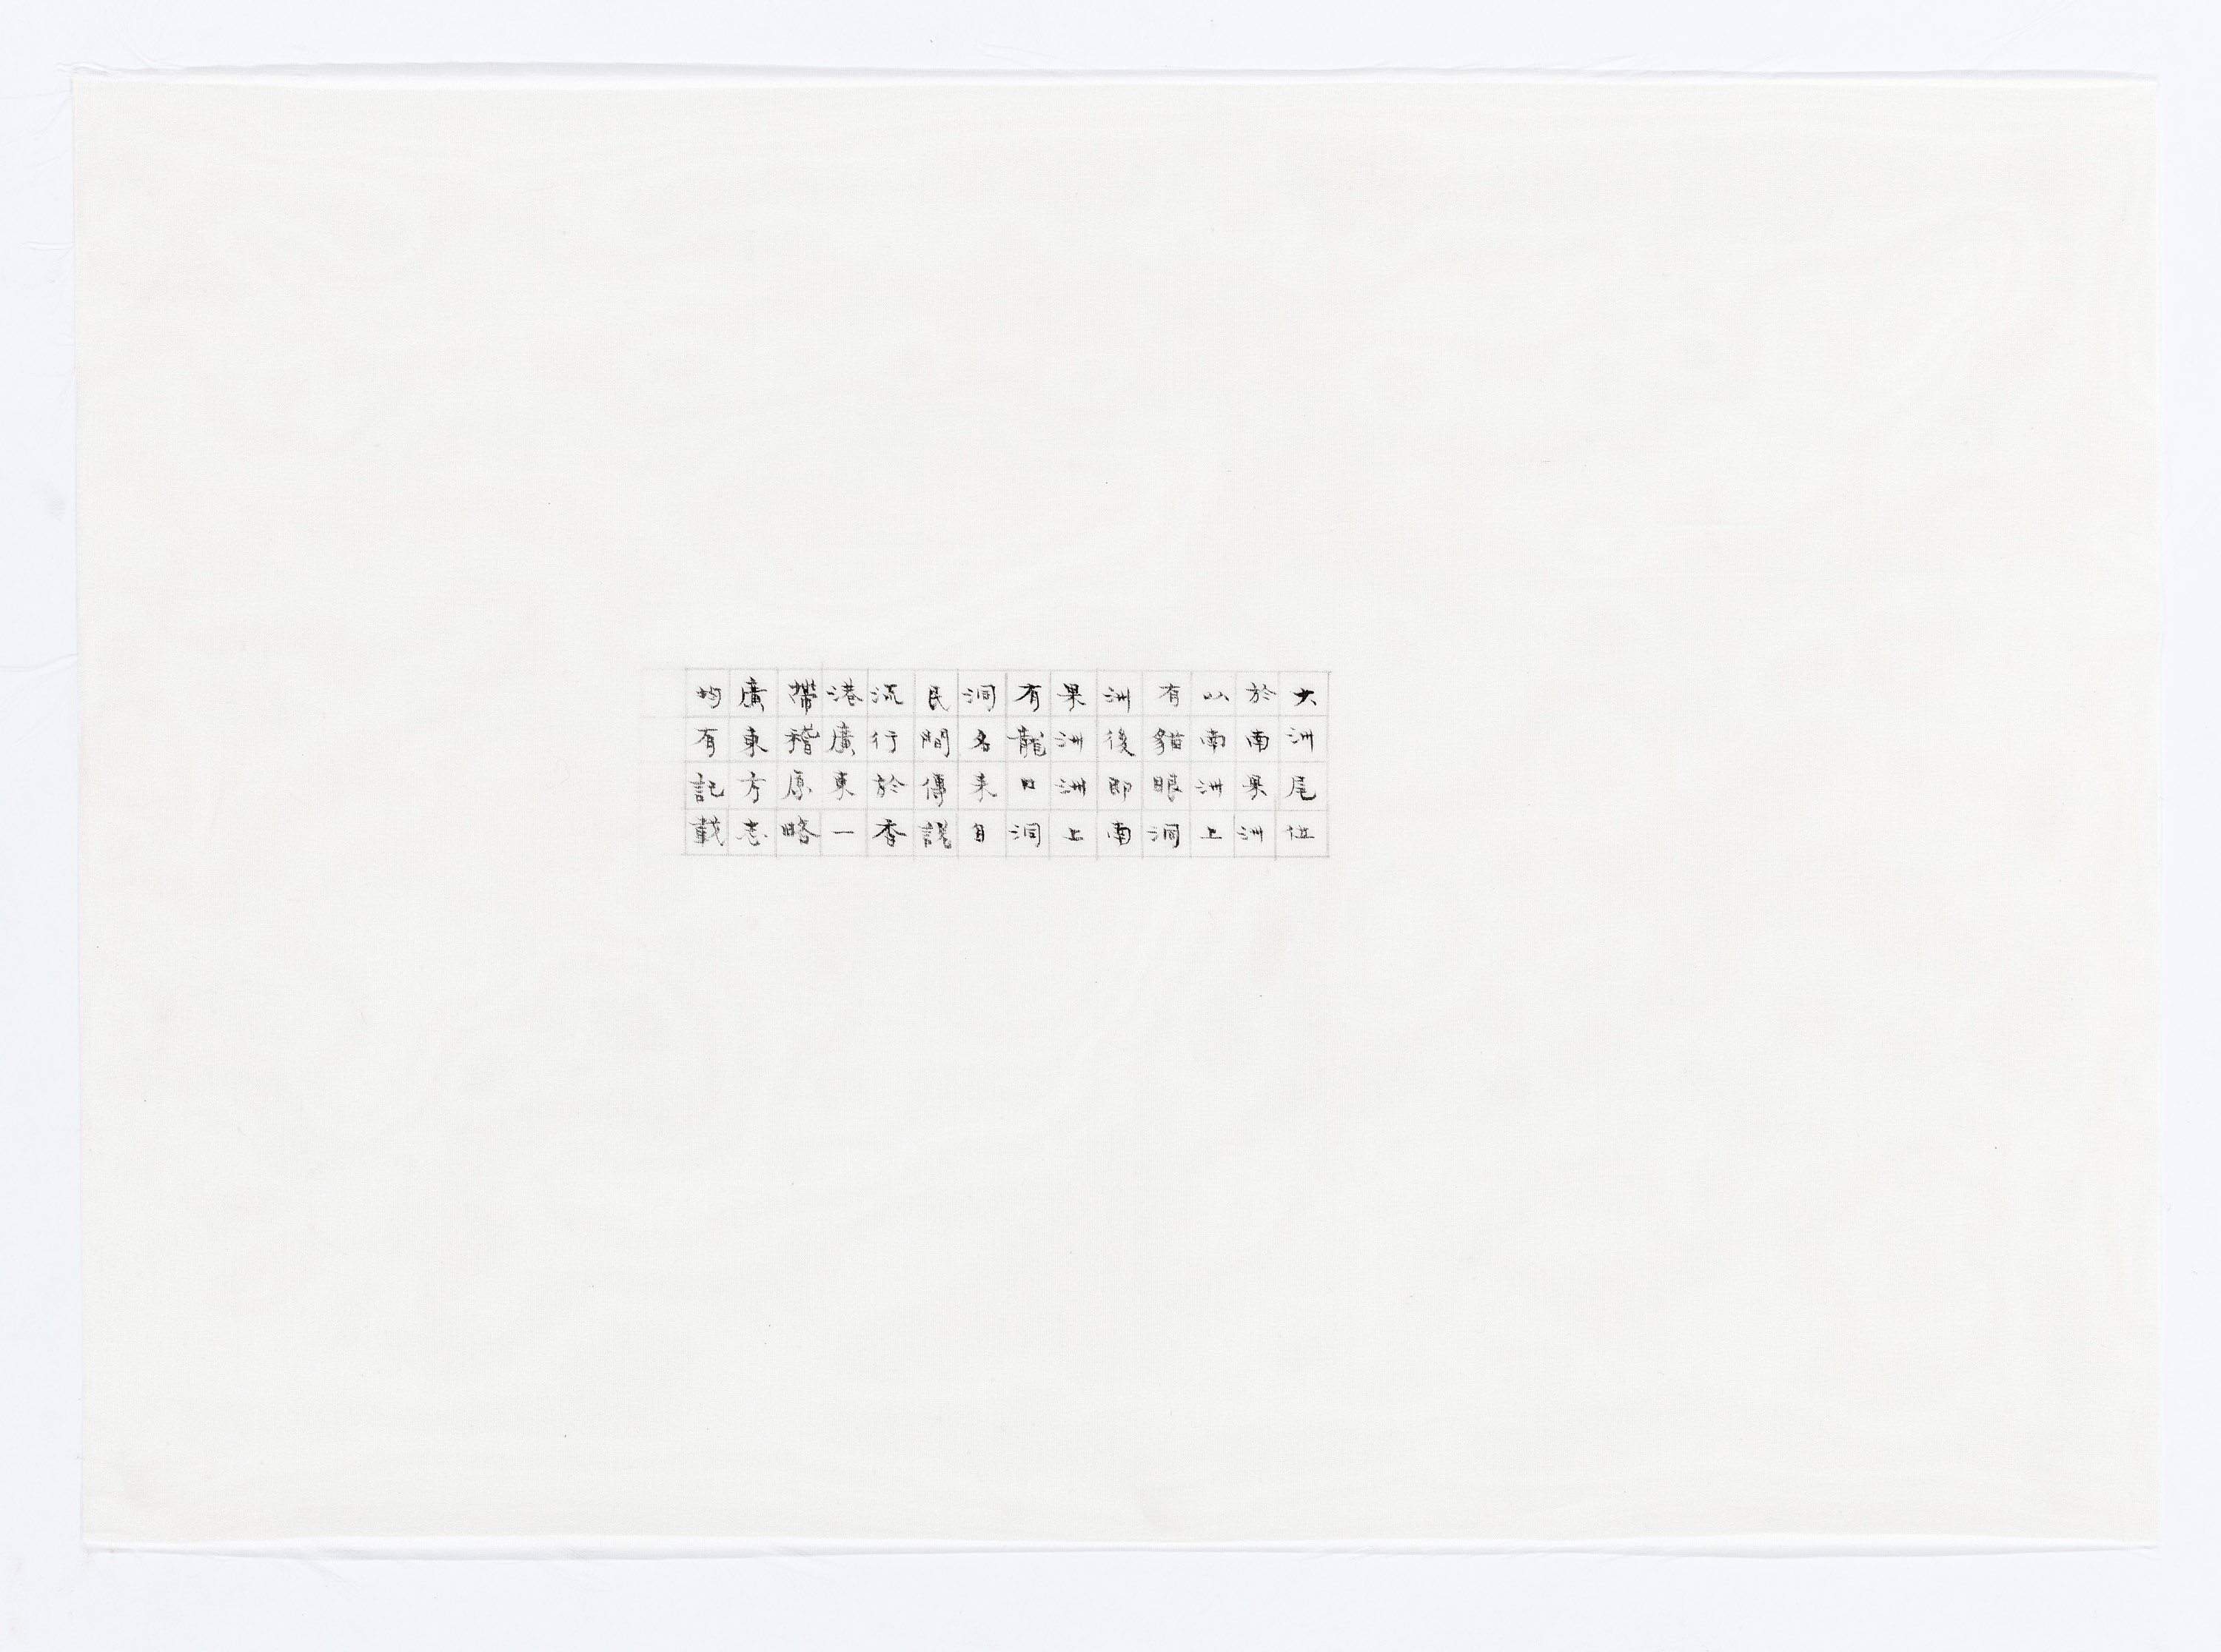 大洲尾位
於南果洲
以南洲上
有貓眼洞
洲後即南
果洲洲上
有龍口洞
洞名来自
民間傳說
流行於香
港廣東一
帶稽原略
廣東方志
均有記載